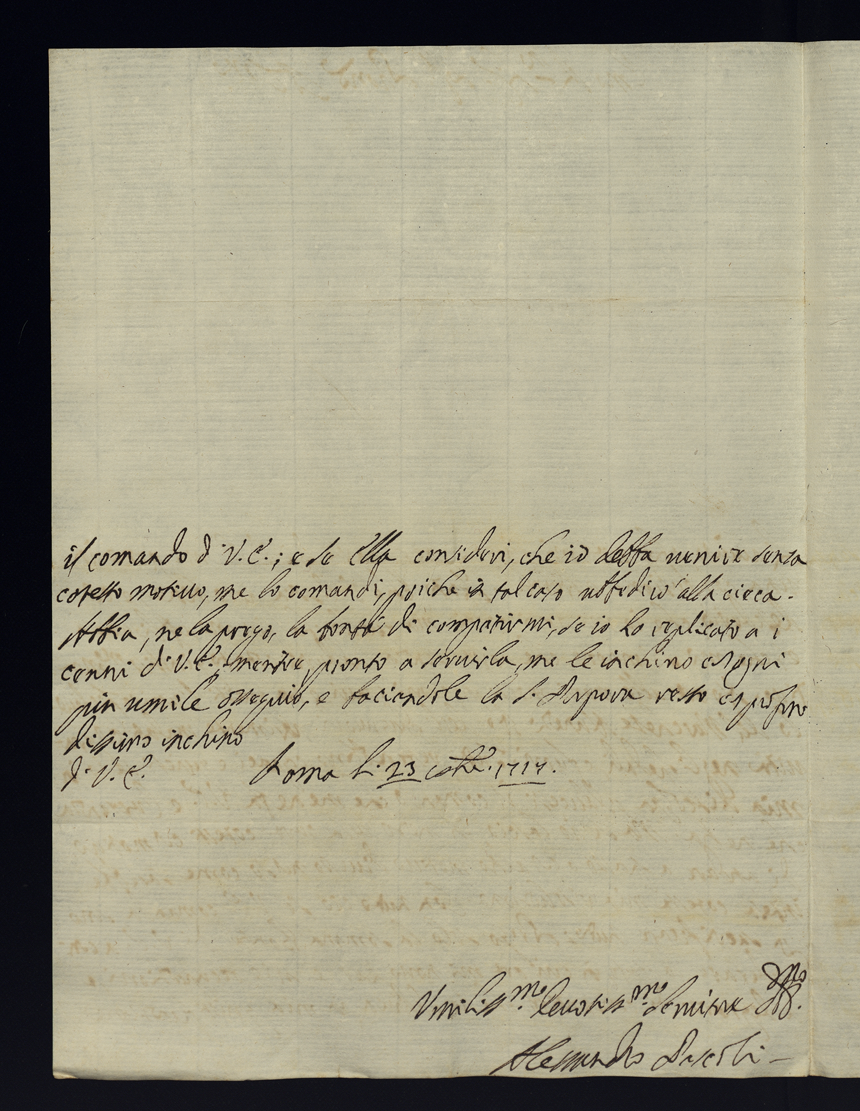 il comando di V. E.; e se Ella consideri, che io debba venire senza
cotesto motivo, me lo comandi, poiche in tal caso ubbedirò alla cieca.
Abbia, ne la prego, la bontà di compatirmi, se io ho replicato a i
cenni di V. E., mentre, pronto a servirla, me le inchino con ogni
più umile ossequio, e faciandole la S. Porpora resto con profon
dissimo inchino
di V. E. Roma li 23 8bre. 1717.
Umiliss.mo devotiss.mo Servitore
Alessandro Pascoli